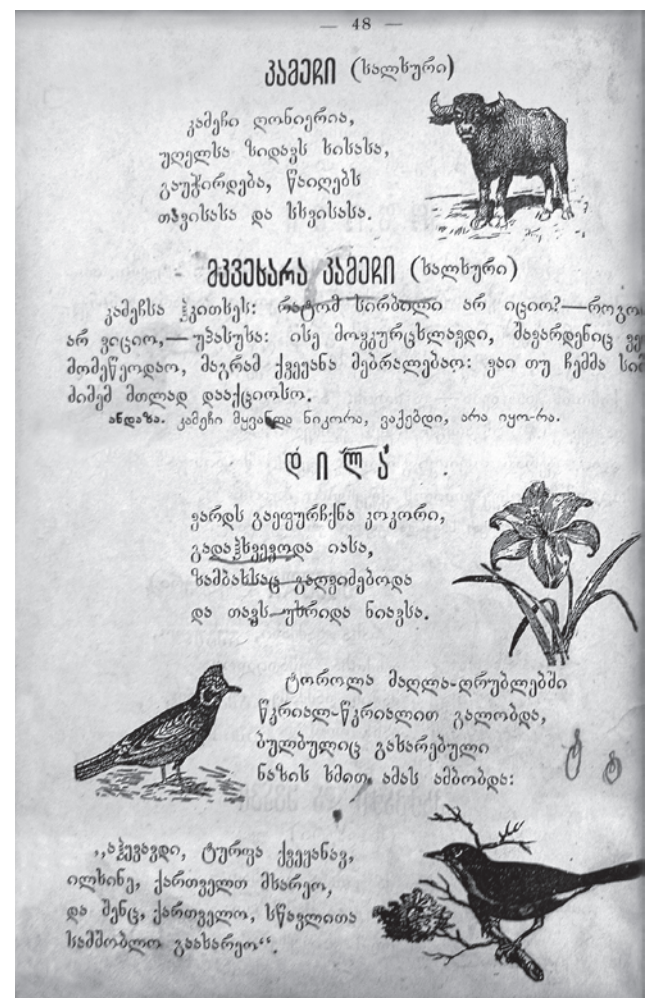 — 48 —
კამეჩი (ხალხური)
კამეჩი ღონიერია,
უღელსა ზიდავს ხისასა,
გაუჭირდება, წაიღებს
თავისასა და სხვისასა.
მკვეხარა კამეჩი (ხალხური)
კამეჩსა ჰკითხეს: რატომ სირბილი არ იციო?—როგო
არ ვიციო,— უპასუხა: ისე მოვკურცხლავდი, შავარდენიც ვე
მომეწეოდაო, მაგრამ ქვეყანა მებრალებაო: ვაი თუ ჩემმა სი
ძიმემ მთლად დააქციოსო.
ანდაზა. კამეჩი მყვანდა ნიკორა, ვაქებდი, არა იყო-რა.
დილა
ვარდს გაეფურჩქნა კოკორი,
გადაჰხვევოდა იასა,
ზამბახსაც გაღვიძებოდა
და თავს უხრიდა ნიავსა.
ტოროლა მაღლა-ღრუბლებში
წკრიალ-წკრიალით გალობდა,
ბულბულიც გახარებული
ნაზის ხმით ამას ამბობდა:
„აჰყვავდი, ტურფა ქვეყანავ,
ილხინე, ქართველთ მხარეო,
და შენც, ქართველო, სწავლითა
სამშობლო გაახარეო“.